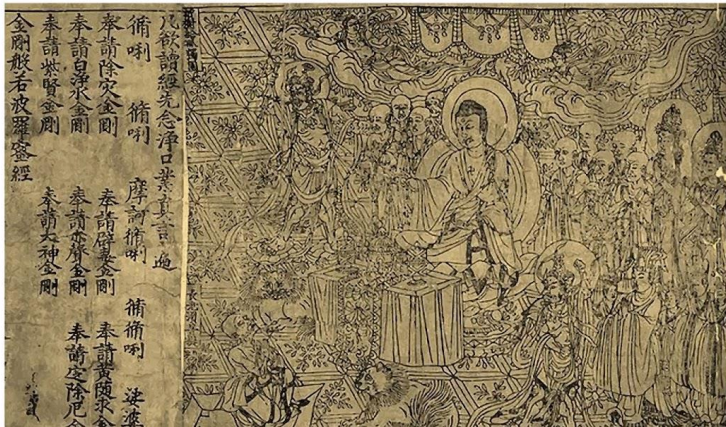 凡欲讀經先念淨口業真言一遍
脩唎 脩唎 摩訶脩唎 脩脩唎 娑婆
奉請除灾金剛 奉請辟毒金剛 奉請黃随求金
奉請白淨水金剛 奉請赤聲金剛 奉請定除厄金
奉請紫賢金剛 奉請大神金剛
金剛般若波羅蜜經